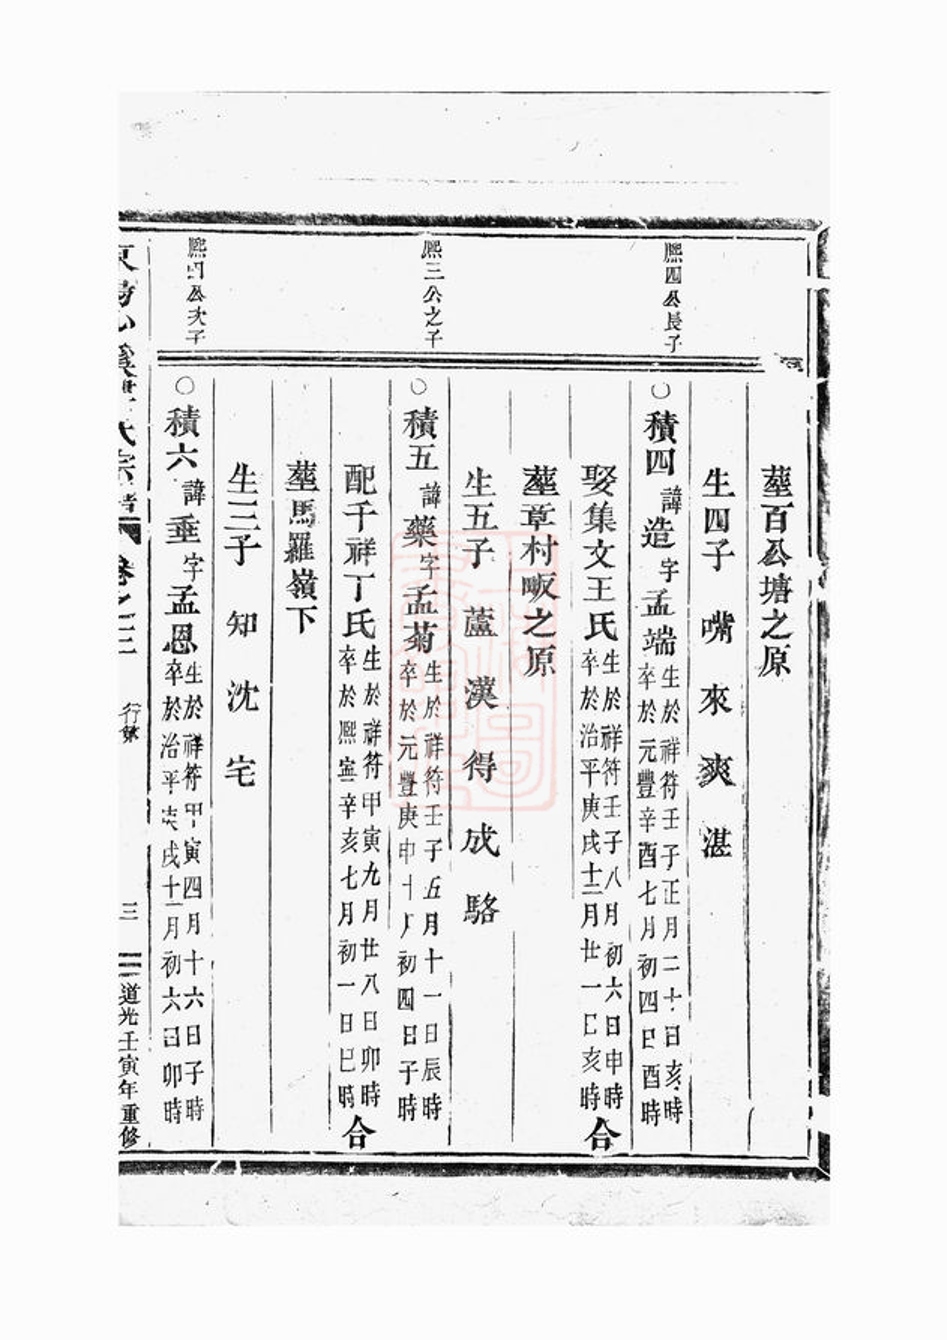 塟百公塘之原
生四子 嘴 來 爽 湛
熈四公長子
○積四諱造字孟端生於祥符壬子正月二十日亥時
卒於元豐辛酉七月初四日酉時
娶集文王氏生於祥符壬子八月初六日申時
卒於治平庚戌十二月廿一日亥時合
塟章村畈之原
生五子 蘆 漢 得 成 駱
熈三公之子
○積五諱藥字孟菊生於祥符壬子五月十一日辰時
卒於元豐庚申十月初四日子時
配千祥丁氏生於祥符甲寅九月廿八日卯時
卒於熈寧辛亥七月初一日巳時合
塟馬羅嶺下
生三子 知 沈 宅
熈四公次子
○積六諱垂字孟恩生於祥符甲寅四月十六日子時
卒於治平戌十一月初六日卯時
氏宗譜 卷之三 行第 三 道光壬寅年重修